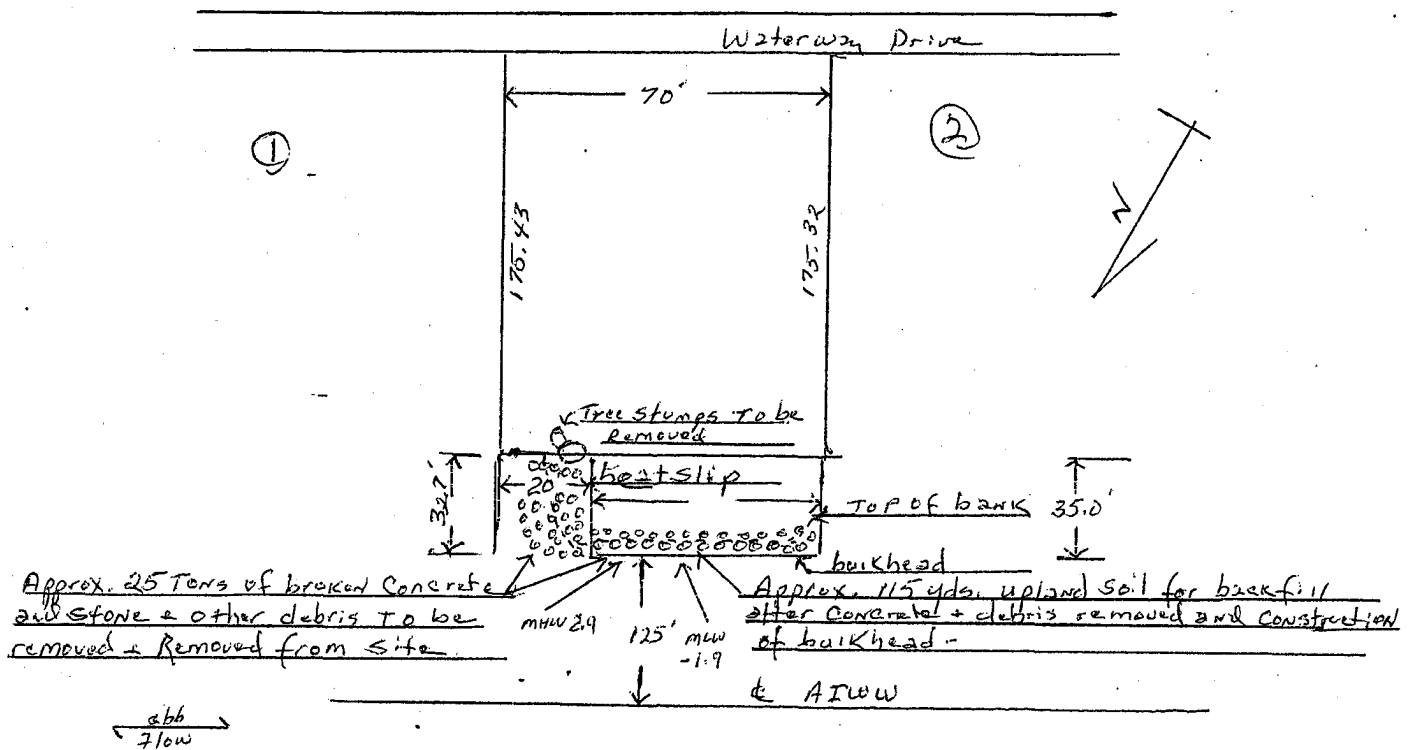 Waterway Drive
70'
①
②
N
175.43
175.32
Tree Stumps To be
Removed
boatslip
20'
32.7'
Top of bank
35.0'
bulkhead
Approx. 25 Tons of broken Concrete
and Stone & other debris To be
removed & Removed from Site
MHW 2.9
125'
MLW
-1.9
Approx. 115 yds. upland Soil for backfill
after Concrete + debris removed and Construction
of bulkhead -
℄ AIWW
ebb
Flow